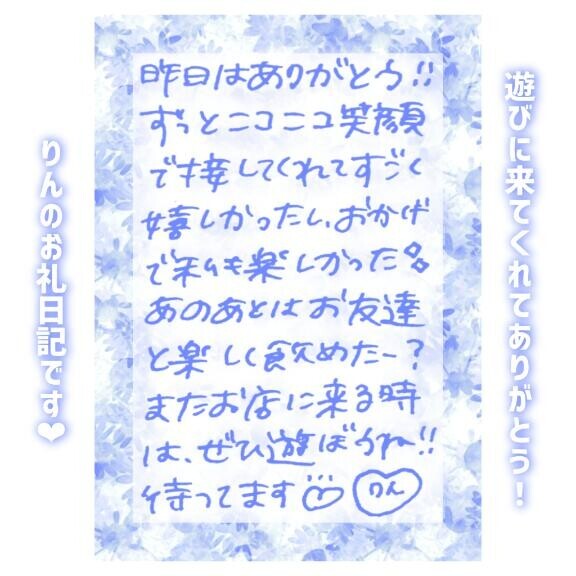 遊びに来てくれてありがとう！
昨日はありがとう!!
ずっとニコニコ笑顔
で接してくれてすごく
嬉しかったし、おかげ
で私も楽しかった
あのあとはお友達
と楽しく飲めたー？
またお店に来る時
は、ぜひ遊ぼうね!!
待ってます
りん
りんのお礼日記です❤